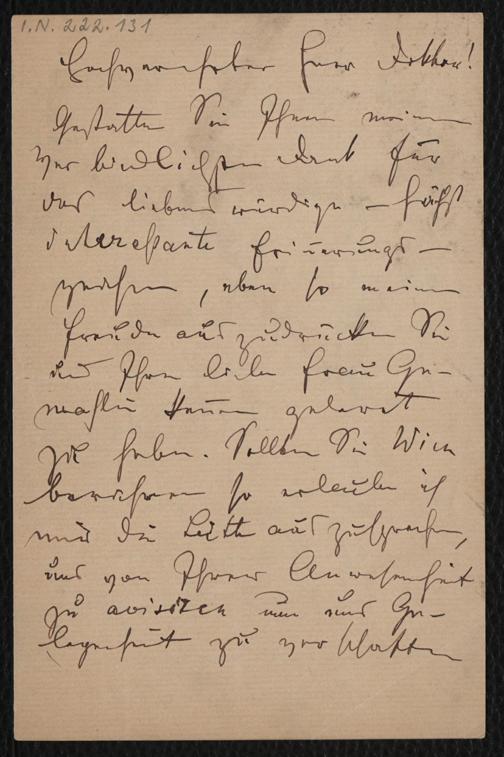 I.N. 222.131
Hochverehrter Herr Doktor!
Gestatten Sie Ihnen meinen
verbindlichsten Dank für
das liebenswürdige – höchst
interessante Erinnerungs-
zeichen, eben so meine
Freude auszudrücken Sie
und Ihre liebe Frau Ge-
mahlin kennen gelernt
zu haben. Sollten Sie Wien
berühren so erlaube ich
mir die Bitte auszusprechen,
uns von Ihrer Anwesenheit
zu avisiren um uns Ge-
legenheit zu verschaffen